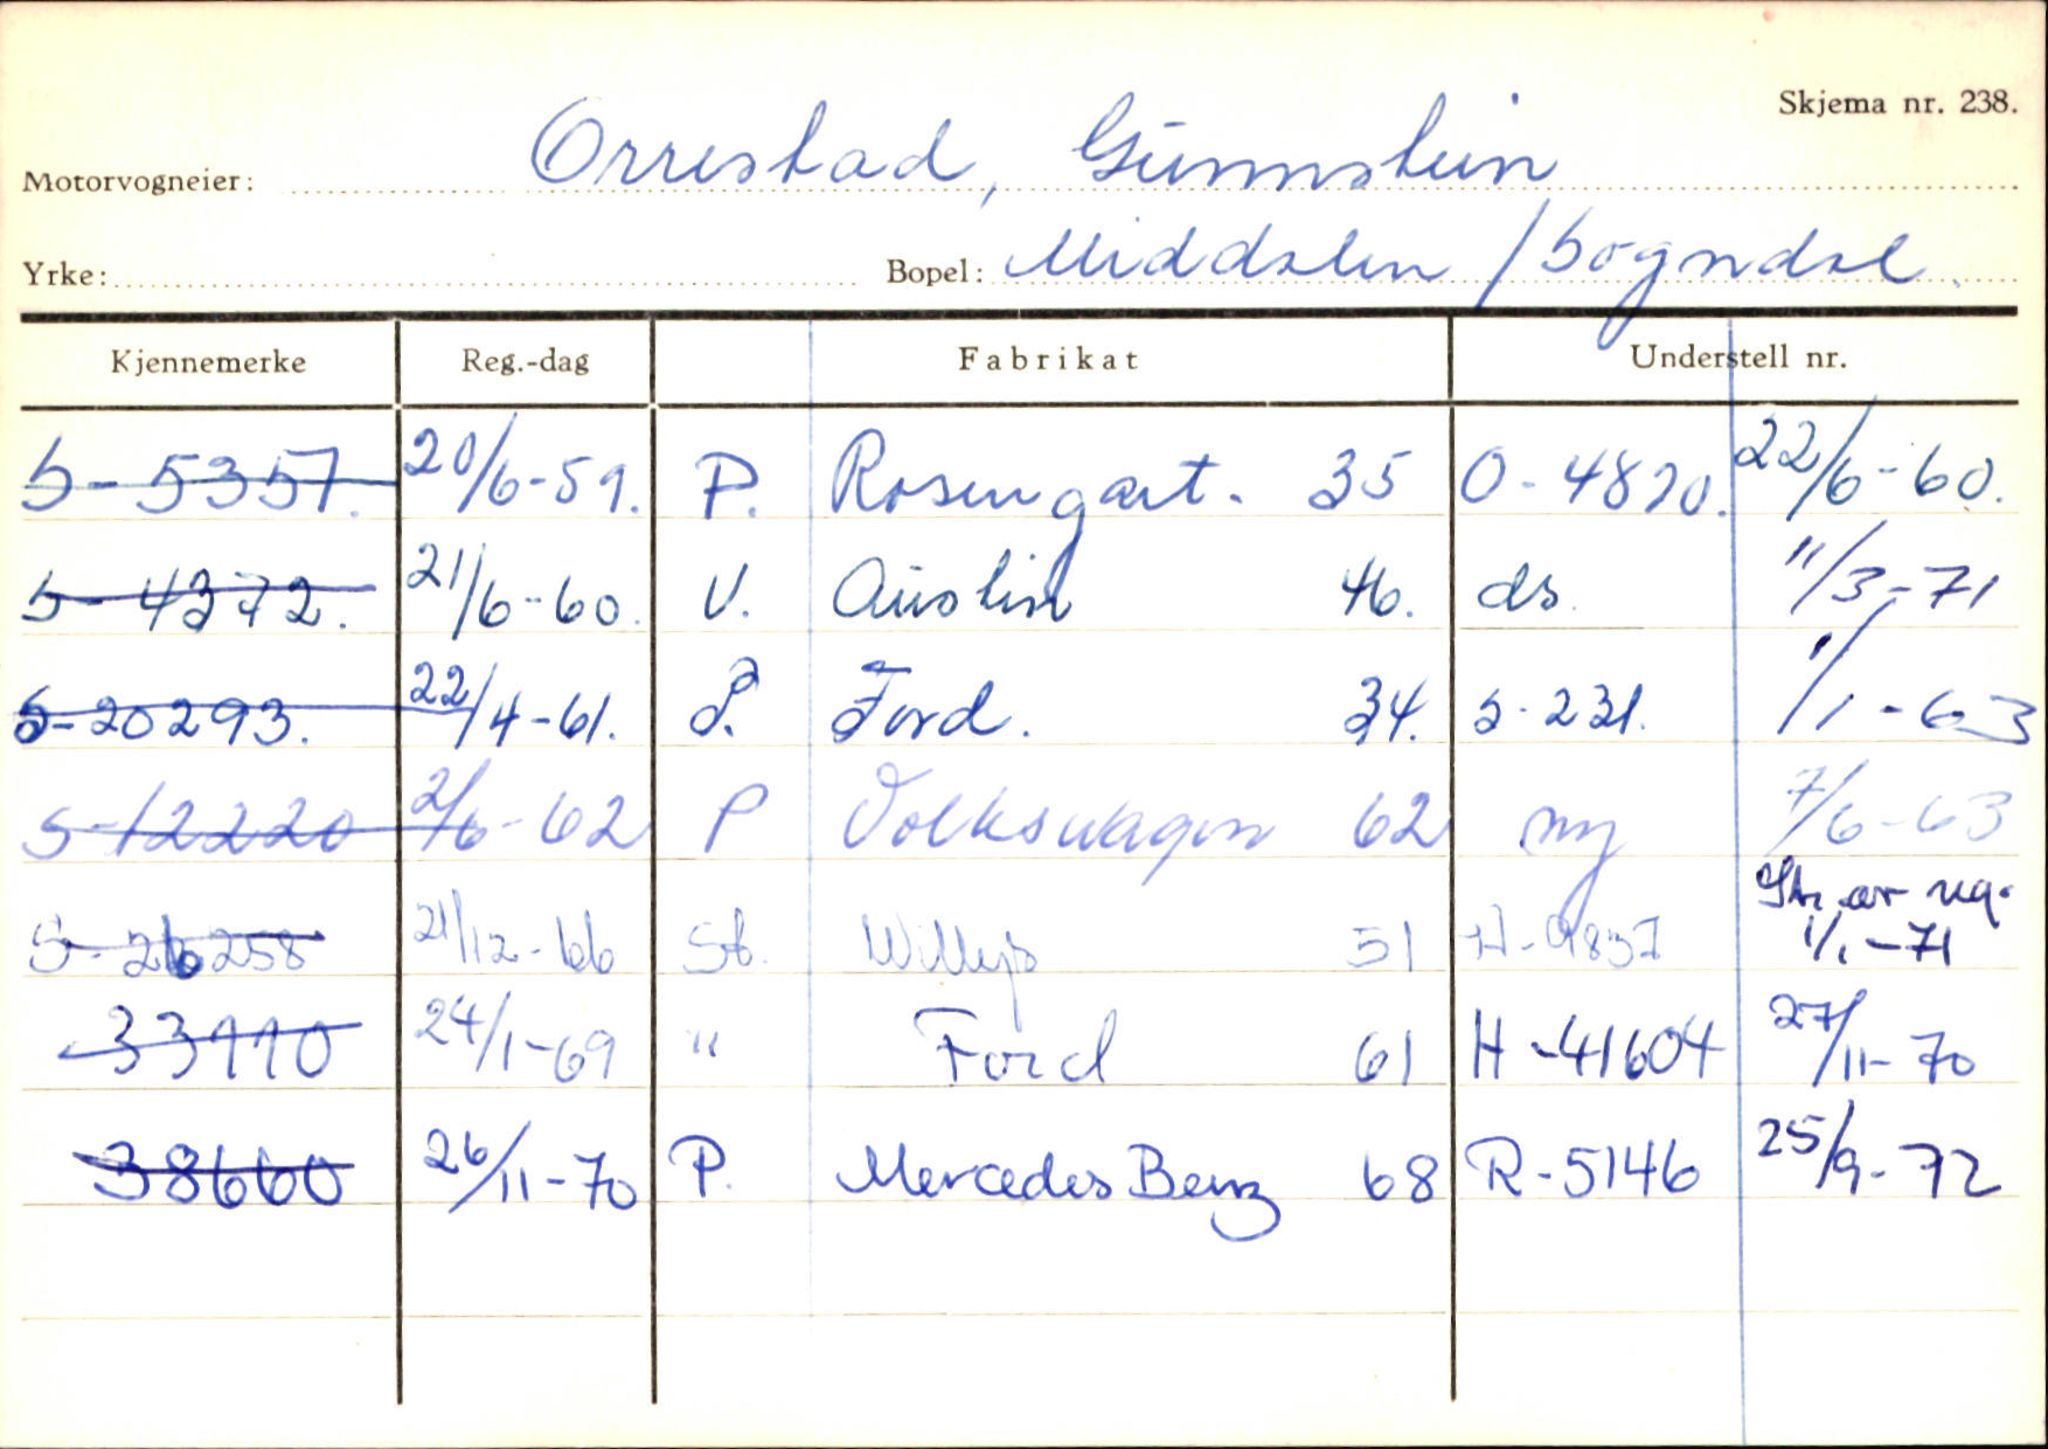 Skjema nr. 238.
Motorvogneier: Orrestad, Gunnstein
Yrke: Bopel: Middalen / Sogndal
Kjennemerke Reg.-dag Fabrikat Understell nr.
S-5357. 20/6-59. P. Rosengart. 35 O-4820. 22/6-60.
S-4372. 21/6-60. V. Austin 46. ds. 11/3-71
S-20293. 22/4-61. P. Ford. 34. S-231. 1/1-63
S-12220 2/6-62 P Volkswagen 62 ny 7/6-63
S-26258 21/12-66 St. Willys 51 H-9837 Str. av reg. 1/1-71
33110 24/1-69 " Ford 61 H-41604 27/11-70
38660 26/11-70 P. Mercedes Benz 68 R-5146 25/9-72